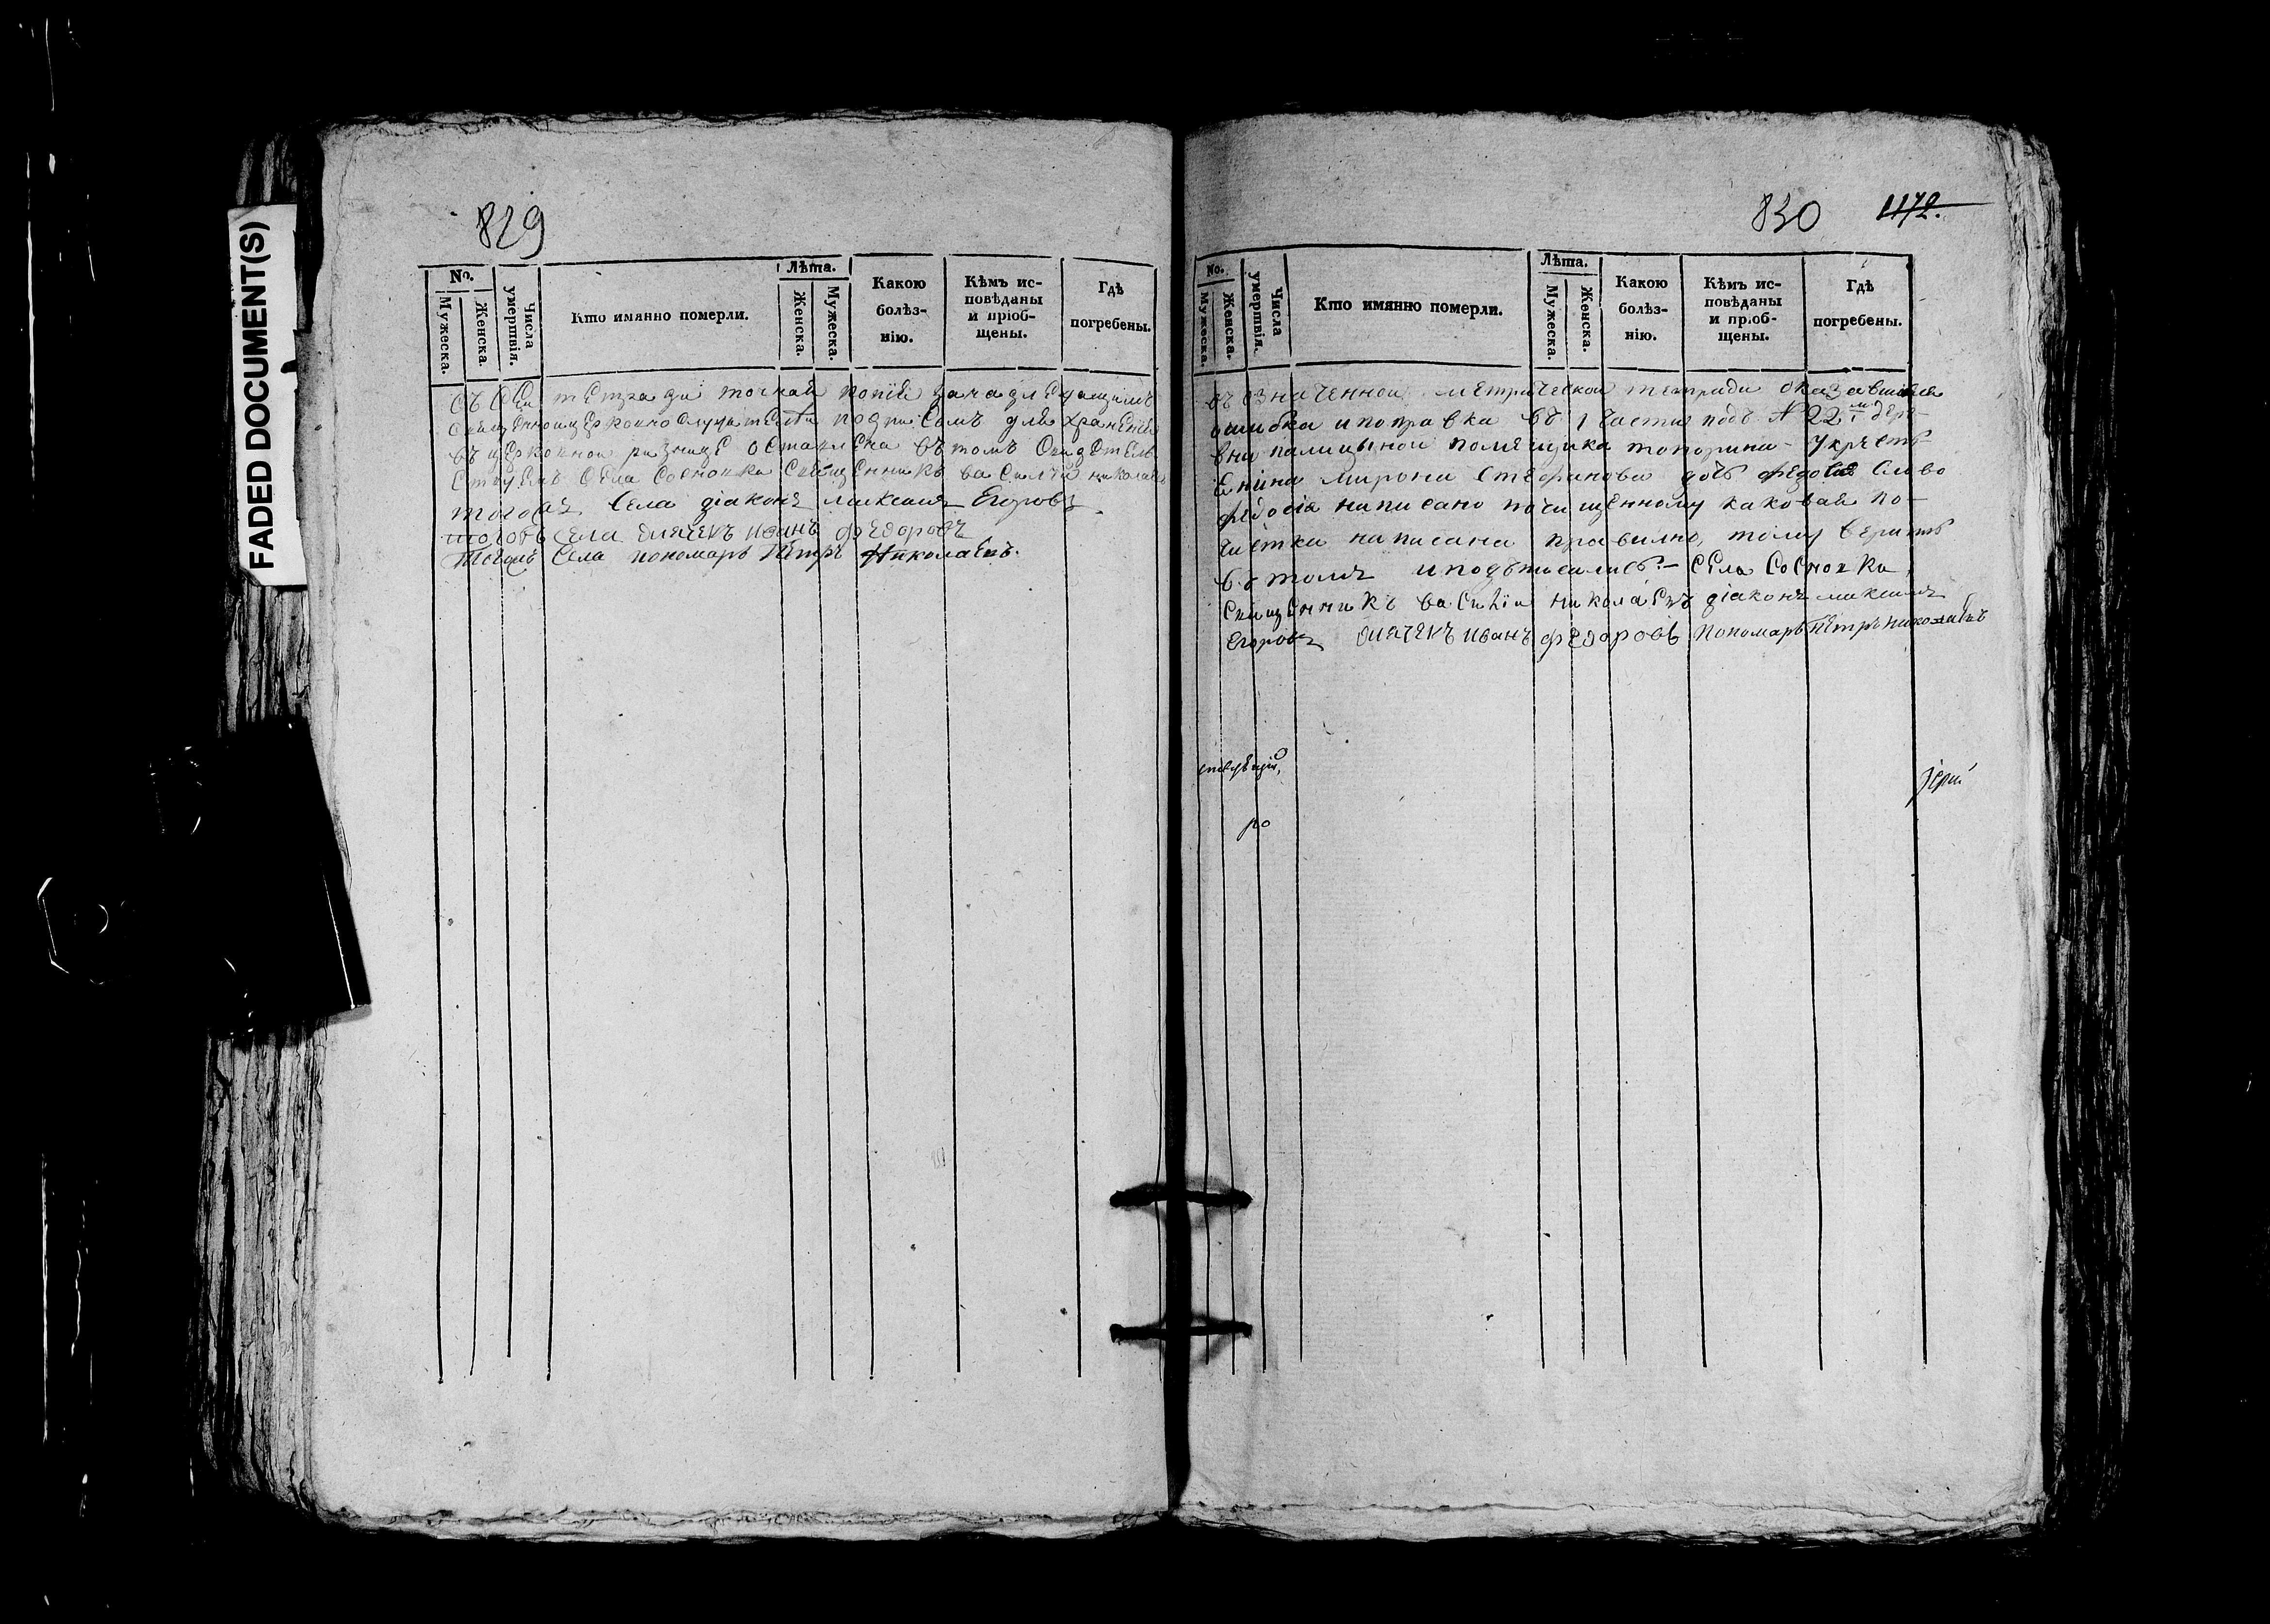 FADED DOCUMENT(S)
829
No.
Мужеска.
Женска.
Числа умертвія.
Кто имянно померли.
Лѣта.
Женска.
Мужеска.
Какою
болѣз-
нію.
Кѣмъ ис-
повѣданы
и пріоб-
щены.
Гдѣ
погребены.
съ сей тетради точная копія за надлежащимъ
священноцерковнослужителей подписомъ для храненія
въ церковной ризнице оставлена въ томъ свидетель
ствуемъ села Сосновки священникъ василій николаевъ
тогожъ села діаконъ максимъ Егоровъ
тогожъ села дьячекъ иванъ федоровъ
Тогожъ села пономарь Пётръ Николаевъ.
830
1172.
No.
Мужеска.
Женска.
Числа умертвія.
Кто имянно померли.
Лѣта.
Мужеска.
Женска.
Какою
болѣз-
нію.
Кѣмъ ис-
повѣданы
и пріоб-
щены.
Гдѣ
погребены.
въ означенной метрической тетради оказавшаяся
ошибка и поправка въ 1 части подъ № 22м дере-
вни палицыной помещика топорина у крестъ-
енина мирона стефанова дочь федосія слово
федосія написано по чищенному каковая по-
чистка написана правилно, тому верить
въ томъ и подъписались.- села Сосновки
священникъ василій николаевъ діаконъ максимъ
Егоровъ дьячекъ иванъ федоровъ пономарь Пётръ николаевъ
ро
Іерей